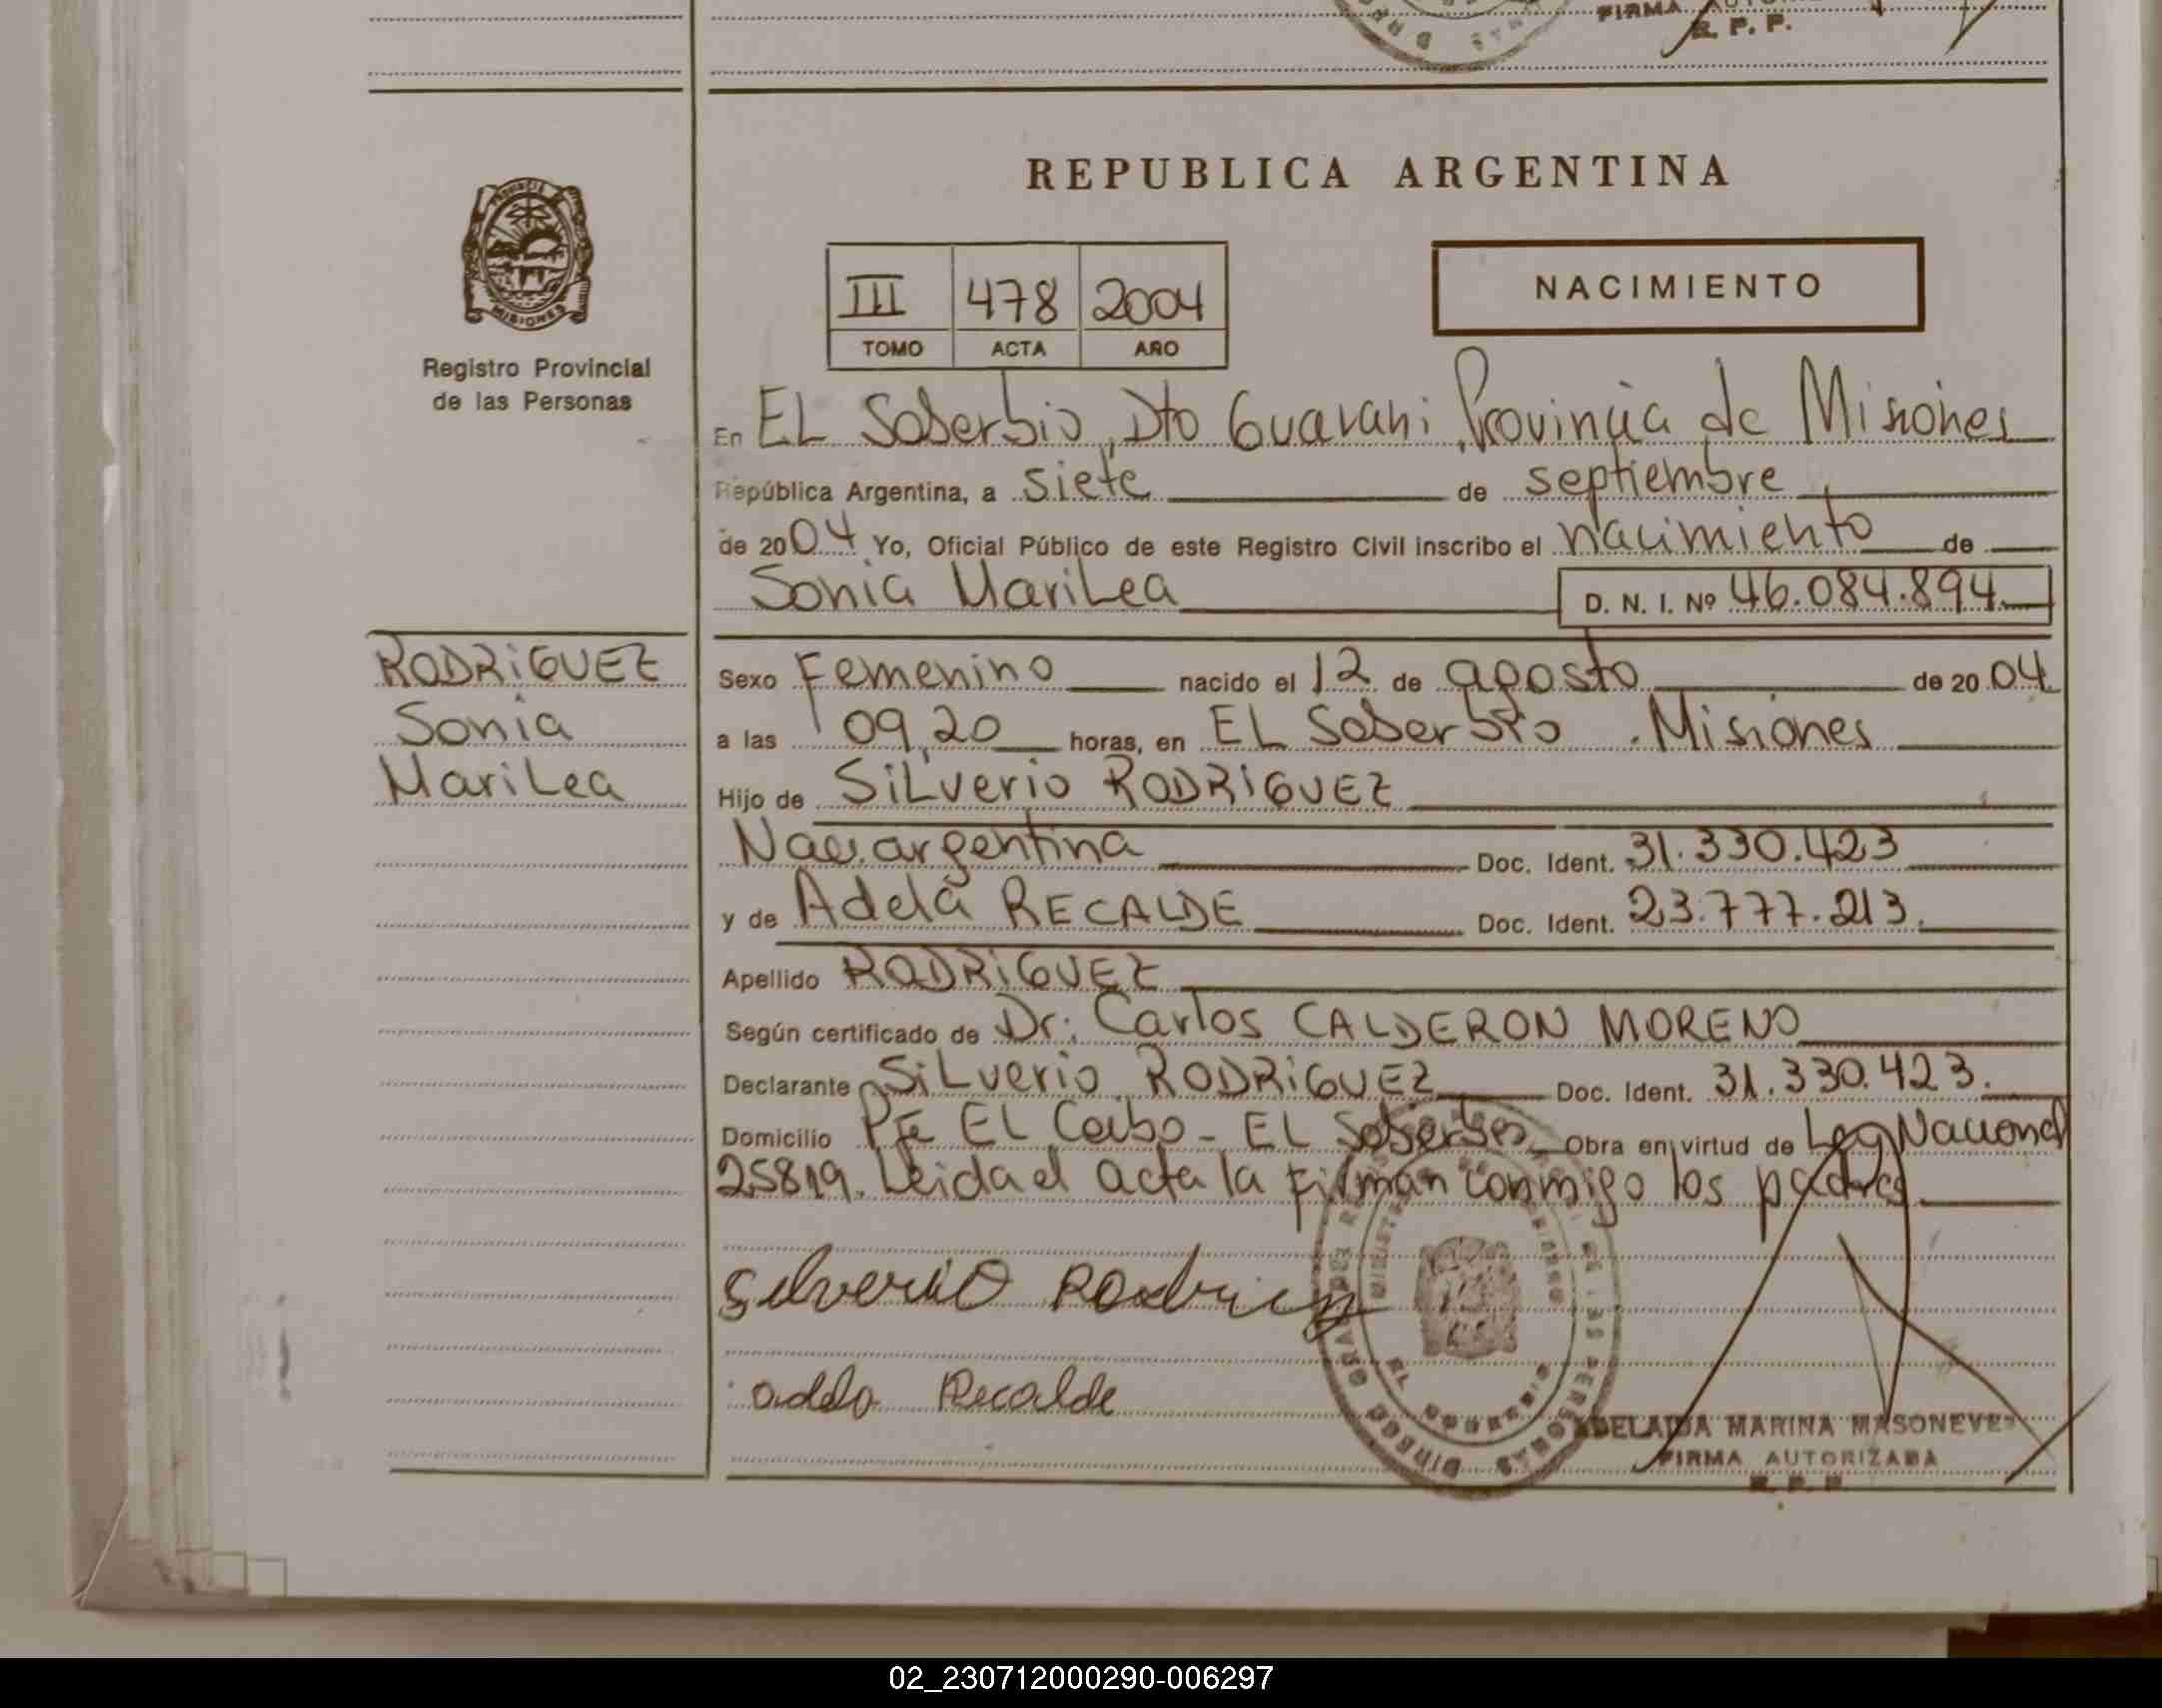 FIRMA
R. P. P.
REPUBLICA ARGENTINA
MISIONES
Registro Provincial
de las Personas
III 478 2004
TOMO ACTA AÑO
NACIMIENTO
En EL Soberbio, Dto Guarani Provincia de Misiones
República Argentina, a siete de septiembre
de 2004 Yo, Oficial Público de este Registro Civil inscribo el nacimiento de
Sonia MariLea D. N. I. Nº 46.084.894.
RODRIGUEZ
Sonia
MariLea
Sexo Femenino nacido el 12 de agosto de 2004
a las 09,20 horas, en EL Soberbio . Misiones
Hijo de SiLverio RODRIGUEZ
Nac. argentina Doc. Ident. 31.330.423
y de Adela RECALDE Doc. Ident. 23.777.213.
Apellido RODRIGUEZ
Según certificado de Dr: Carlos CALDERON MORENO
Declarante SiLverio RODRIGUEZ Doc. Ident. 31.330.423.
Domicilio Pje EL Ceibo - EL Soberbio Obra en virtud de Ley Nacional
25819. Leida el acta la firman conmigo los padres
Silverio Rodriguez
adela Recalde
ADELAIDA MARINA MASONEVE
FIRMA AUTORIZADA
R. P. P.
02_230712000290-006297